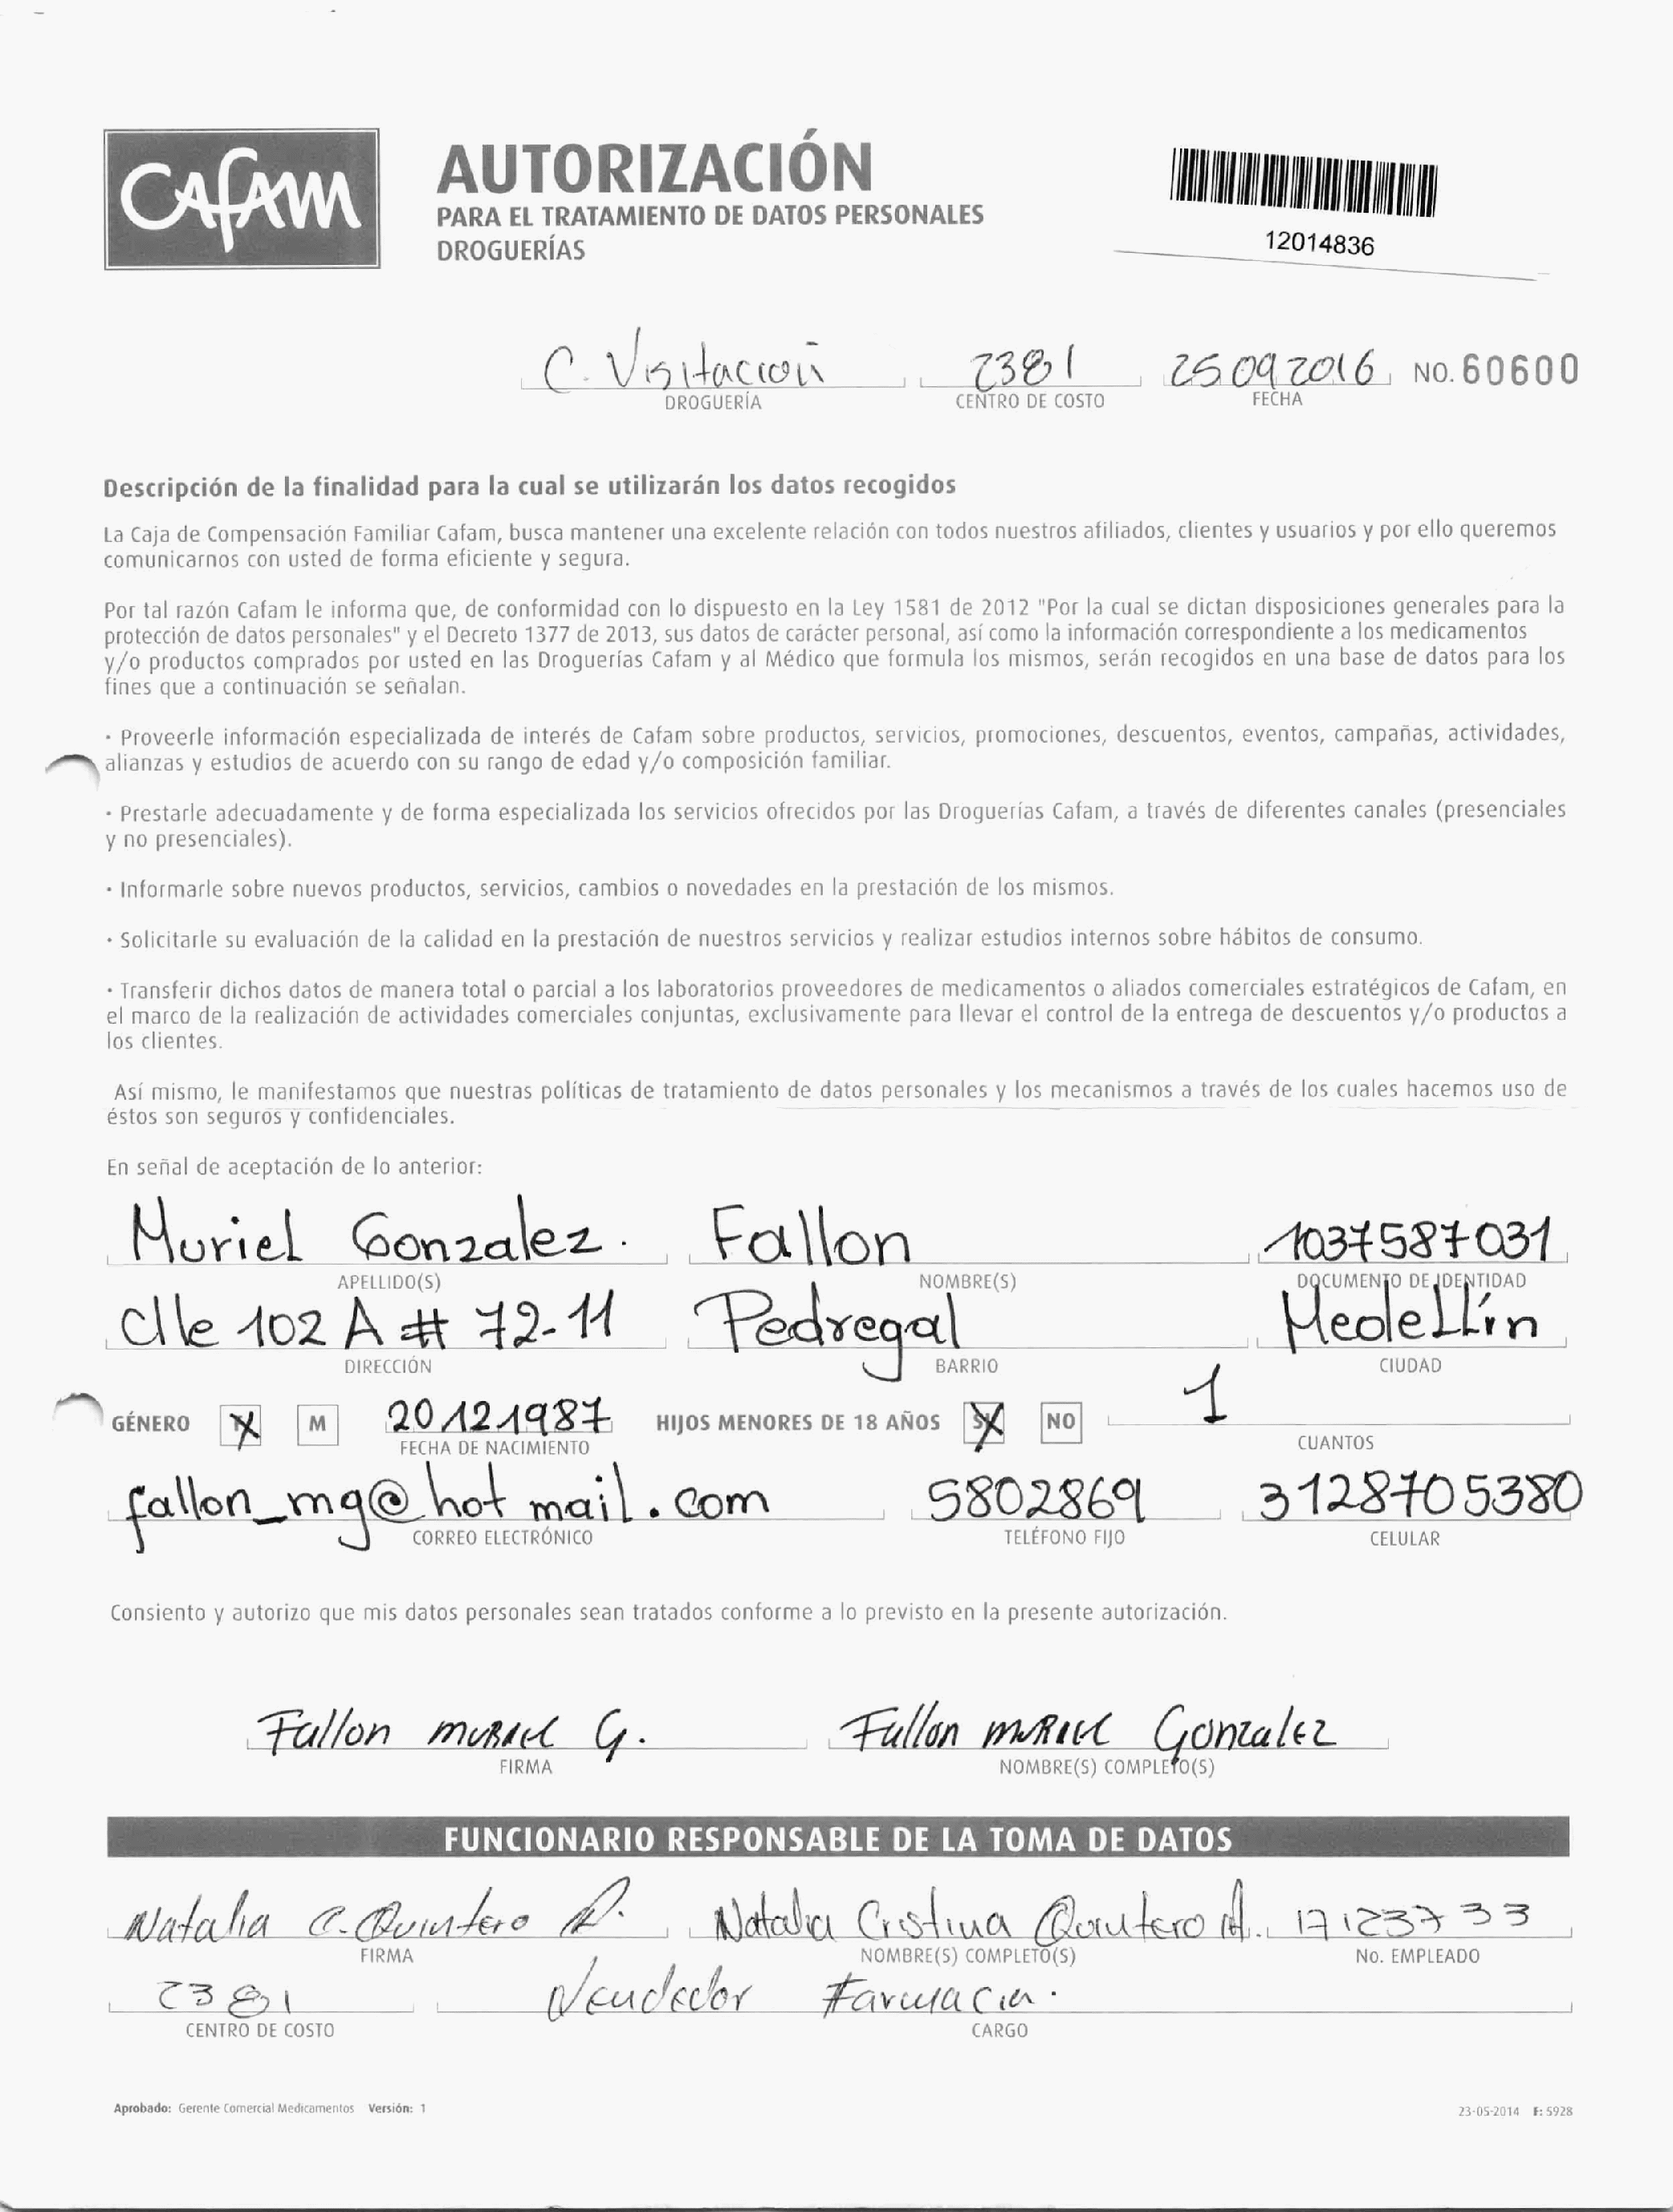 Cafam
AUTORIZACIÓN
PARA EL TRATAMIENTO DE DATOS PERSONALES
DROGUERÍAS
12014836
C. Visitación 2381 25 09 2016 NO. 60600
DROGUERÍA CENTRO DE COSTO FECHA
Descripción de la finalidad para la cual se utilizarán los datos recogidos
La Caja de Compensación Familiar Cafam, busca mantener una excelente relación con todos nuestros afiliados, clientes y usuarios y por ello queremos
comunicarnos con usted de forma eficiente y segura.
Por tal razón Cafam le informa que, de conformidad con lo dispuesto en la Ley 1581 de 2012 "Por la cual se dictan disposiciones generales para la
protección de datos personales" y el Decreto 1377 de 2013, sus datos de carácter personal, así como la información correspondiente a los medicamentos
y/o productos comprados por usted en las Droguerías Cafam y al Médico que formula los mismos, serán recogidos en una base de datos para los
fines que a continuación se señalan.
· Proveerle información especializada de interés de Cafam sobre productos, servicios, promociones, descuentos, eventos, campañas, actividades,
alianzas y estudios de acuerdo con su rango de edad y/o composición familiar.
· Prestarle adecuadamente y de forma especializada los servicios ofrecidos por las Droguerías Cafam, a través de diferentes canales (presenciales
y no presenciales).
· Informarle sobre nuevos productos, servicios, cambios o novedades en la prestación de los mismos.
· Solicitarle su evaluación de la calidad en la prestación de nuestros servicios y realizar estudios internos sobre hábitos de consumo.
· Transferir dichos datos de manera total o parcial a los laboratorios proveedores de medicamentos o aliados comerciales estratégicos de Cafam, en
el marco de la realización de actividades comerciales conjuntas, exclusivamente para llevar el control de la entrega de descuentos y/o productos a
los clientes.
Así mismo, le manifestamos que nuestras políticas de tratamiento de datos personales y los mecanismos a través de los cuales hacemos uso de
éstos son seguros y confidenciales.
En señal de aceptación de lo anterior:
Muriel Gonzalez. Fallon 1037587031
APELLIDO(S) NOMBRE(S) DOCUMENTO DE IDENTIDAD
Clle 102 A # 72-11 Pedregal Medellín
DIRECCIÓN BARRIO CIUDAD
GÉNERO X M 20 12 1987 HIJOS MENORES DE 18 AÑOS SI X NO 1
FECHA DE NACIMIENTO CUANTOS
fallon_mg@hotmail.com 5802869 3128705380
CORREO ELECTRÓNICO TELÉFONO FIJO CELULAR
Consiento y autorizo que mis datos personales sean tratados conforme a lo previsto en la presente autorización.
Fallon muriel G. Fallon muriel Gonzalez
FIRMA NOMBRE(S) COMPLETO(S)
FUNCIONARIO RESPONSABLE DE LA TOMA DE DATOS
Natalia C. Quintero A. Natalia Cristina Quintero A. 17123733
FIRMA NOMBRE(S) COMPLETO(S) No. EMPLEADO
2381 Vendedor Farmacia.
CENTRO DE COSTO CARGO
Aprobado: Gerente Comercial Medicamentos Versión: 1 23-05-2014 F: 5928